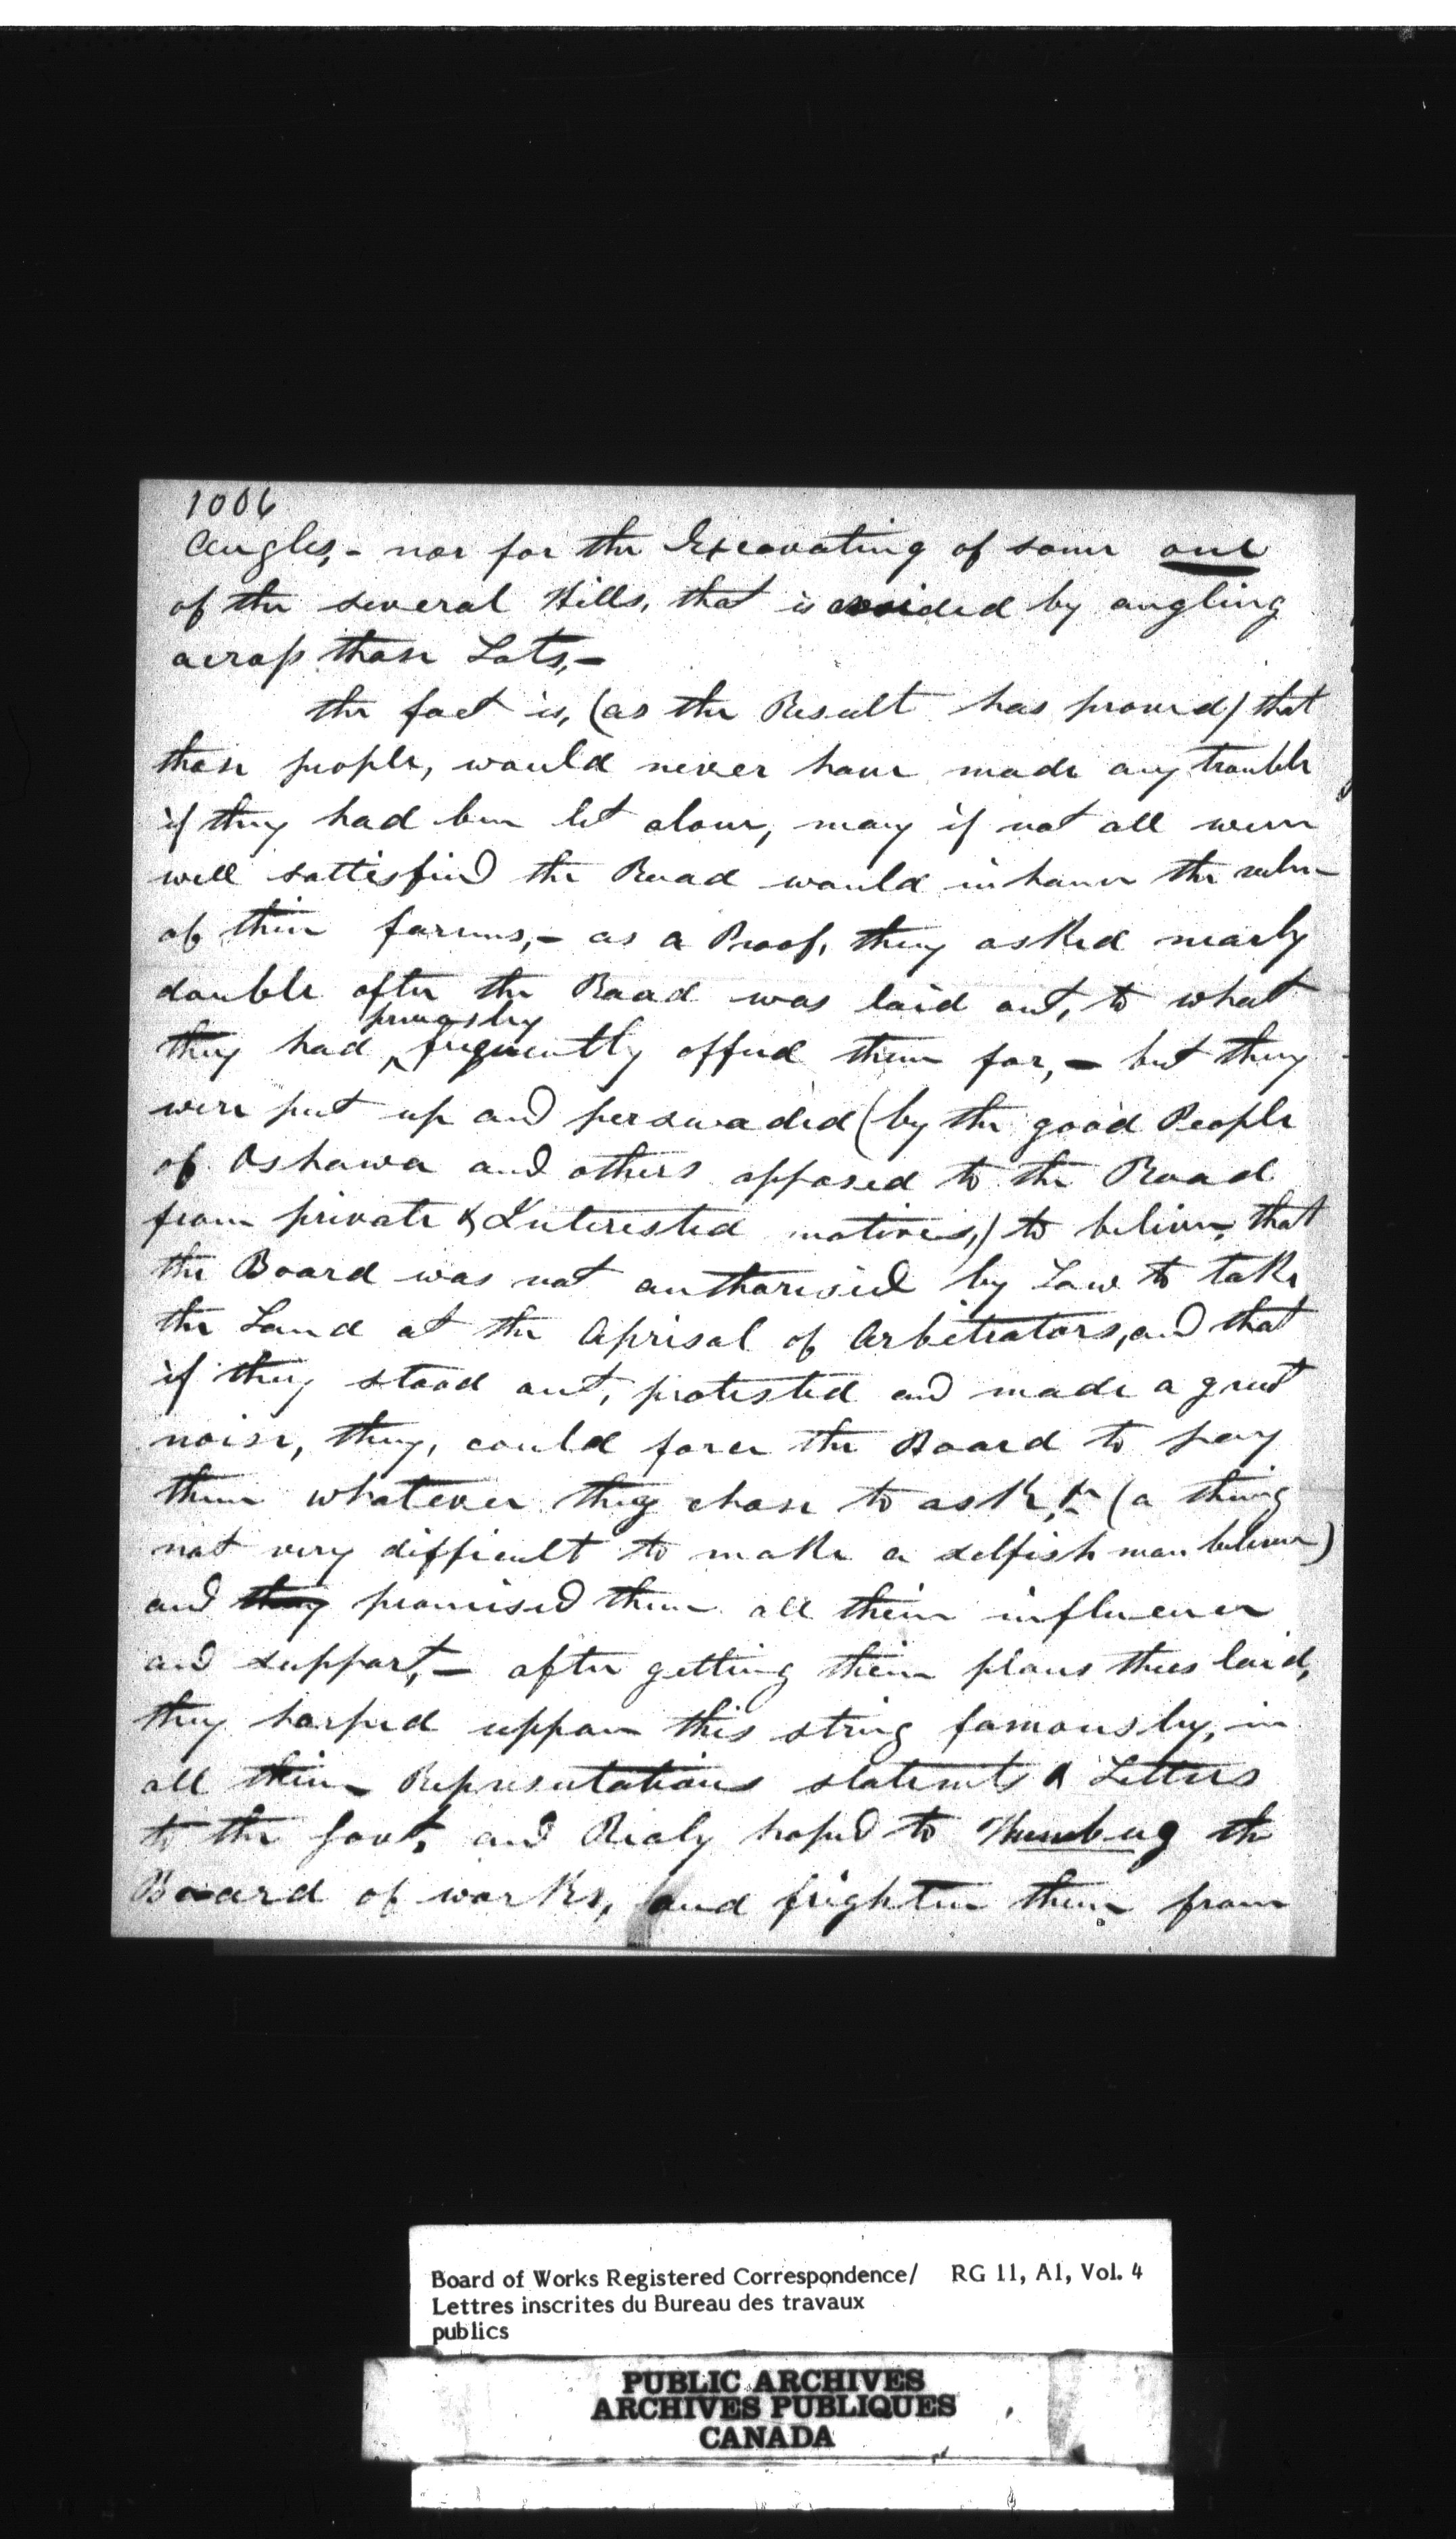 1006
Angles,- nor for the Excavating of some one
of the several Hills, that is avoided by angling
across those Lots,-
the fact is, (as the Result has proved) that
these people, would never have made any trouble
if they had been let alone, many if not all were
well sattisfied the Road would inhance the value
of their farms,- as a Proof, they asked nearly
double after the Road was laid out, to what
previously
they had frequently offerd them for,- but they
were put up and perswaded (by the good People
of Oshawa and others opposed to the Road
from private & Interested motives,) to believe, that
the Board was not authorised by Law to take
the Land at the Aprisal of Arbitrators, and that
if they stood out, protested and made a great
noise, they, could force the Board to pay
them whatever they chose to ask, (a thing
not very difficult to make a selfish man believe)
and they promised them all their influence
and support,- after getting their plans thus laid,
they harped uppon this string famously, in
all their Representations statemts & Letters
to the Govt, and Realy hoped to Humbug the
Board of works, and frighten them from
Board of Works Registered Correspondence/ RG 11, A1, Vol. 4
Lettres inscrites du Bureau des travaux
publics
PUBLIC ARCHIVES
ARCHIVES PUBLIQUES
CANADA